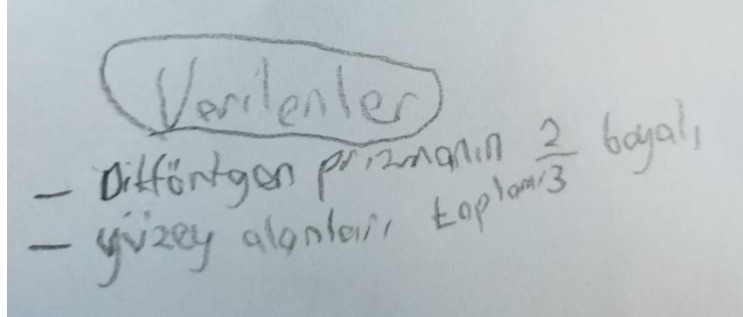 Verilenler
- Dikförtgen prizmanın 2/3 boyalı
- yüzey alanları toplamı